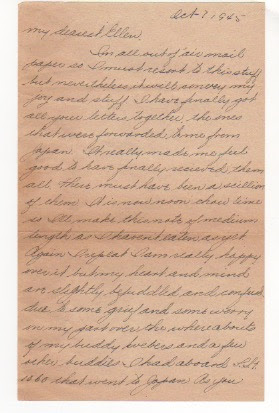 Oct 7, 1945
My dearest Ellen,
I'm all out of air mail
paper so I must resort to this stuff
but nevertheless it will convey my
joy and stuff. I have finally got
all your letters together, the ones
that were forwarded to me from
Japan. It really made me feel
good to have finally received them
all. There must have been a zillion
of them. It is now noon chow time
so I'll make this note of medium
length as I haven't eaten as yet.
Again I repeat I am really happy
over it but my heart and mind
are slightly befuddled and confused
due to some grief and some worry
on my part over the whereabouts
of my buddy and a few
other buddies I had aboard
that went to Japan. As you